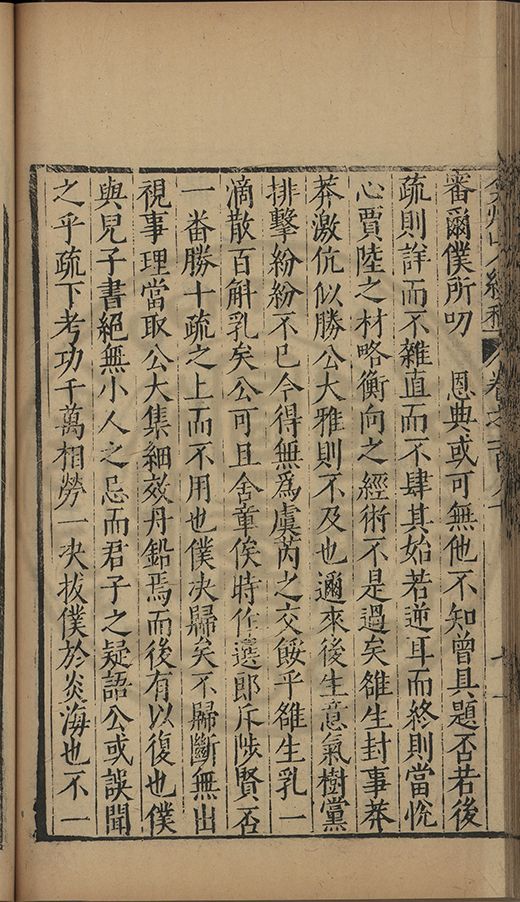 弇州山人續稿 卷之一百八十
審爾僕所叨　恩典或可無他不知曾具題否若後
疏則詳而不雜直而不肆其始若逆耳而終則當悅
心賈陸之材略衡向之經術不是過矣雒生封事莽
莽激伉似勝公大雅則不及也邇來後生意氣樹黨
排擊紛紛不已今得無爲虞芮之交餒乎雒生乳一
滴散百斛乳矣公可且舍章俟時作選郎斥陟賢否
一番勝十疏之上而不用也僕决歸矣不歸斷無出
視事理當取公大集細效丹鉛焉而後有以復也僕
與兒子書絕無小人之忌而君子之疑語公或誤聞
之乎疏下考功千萬相勞一决拔僕於炎海也不一